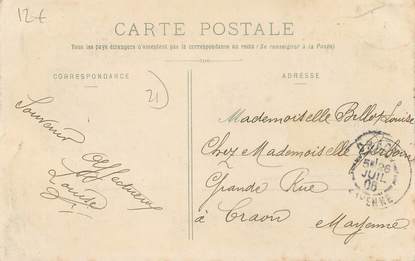 12€
CARTE POSTALE
Tous les pays étrangers n'acceptent pas la correspondance au recto (Se renseigner à la Poste)
CORRESPONDANCE
ADRESSE
21
Souvenir
affectueux
Louise
Mademoiselle Bellot Louise
Chez Mademoiselle
Grande Rue
à Craon Mayenne
CRAON
26
JUIL
08
MAYENNE